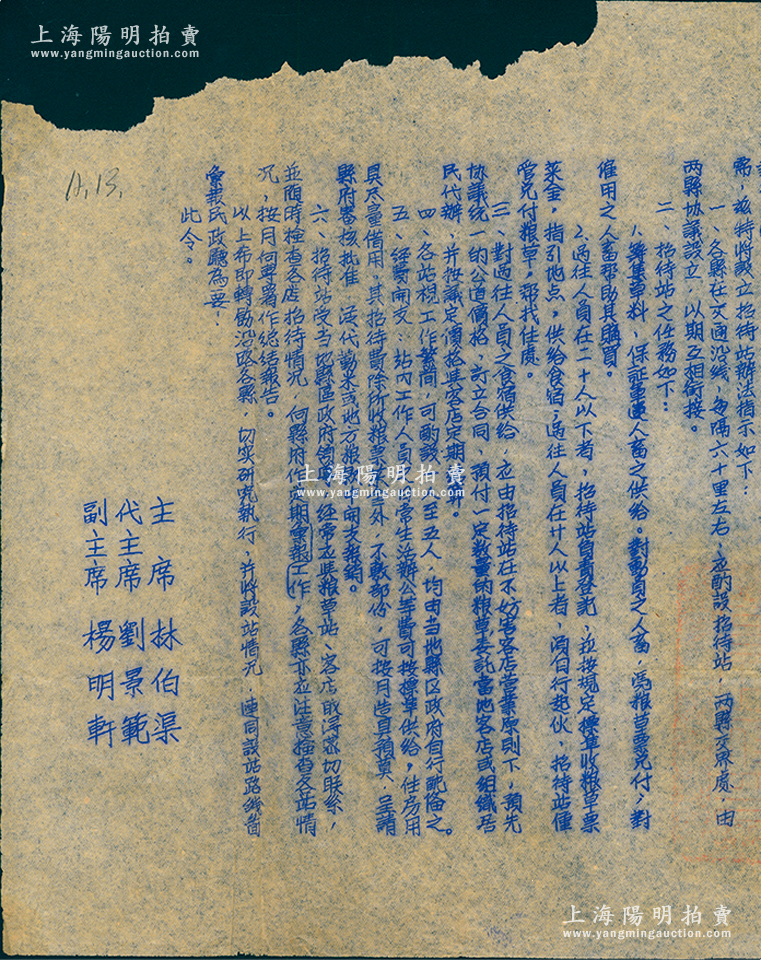 上海陽明拍賣
www.yangmingauction.com
11.13.
需，兹特將設立招待站辦法指示如下：
一、各縣在交通沿綫，每隔六十里左右，应酌設招待站，兩縣交界處，由
兩縣協議設立，以期互相銜接。
二、招待站之任務如下：
1.籌集草料，保証軍運人畜之供給。對動員之人畜，憑粮草票兑付；對
僱用之人畜帮助其購買。
2.過往人員在二十人以下者，招待站負責登記，並按規定標準收粮草票
菜金，指引地点，供給食宿；過往人員在廿人以上者，須自行起伙，招待站僅
管兑付粮草，帮找住處。
三、對過往人員之食宿供給，应由招待站在不妨害客店營業原則下，預先
協議統一的公道價格，訂立合同，預付一定数量的粮草，委託當地客店或組織居
民代辦，并按議定價格與客店定期
四、各站視工作繁簡，可酌設 至五人，均由当地縣区政府自行配备之。
五、經費開支：站内工作人員 常生活辦公等費可按標準供給，住房用
具尽量借用，其招待費除所收粮草 外，不敷部份，可按月造具預算，呈請
縣府審核批准 開支報銷。
六、招待站受当地縣區政府領 經常应與粮草站、客店取得密切联系，
並随時檢查各店招待情况，向縣府作定期彙報工作；各縣亦应注意檢查各站情
况，按月向專署作總結報告。
以上希即轉飭沿路各縣，切实研究執行，并將設站情况，連同設站路綫圖
彙報民政廳為要。
此令。
主席 林伯渠
代主席 劉景範
副主席 楊明軒
上海陽明拍賣
www.yangmingauction.com
上海陽明拍賣
www.yangmingauction.com
上海陽明拍賣
www.yangmingauction.com